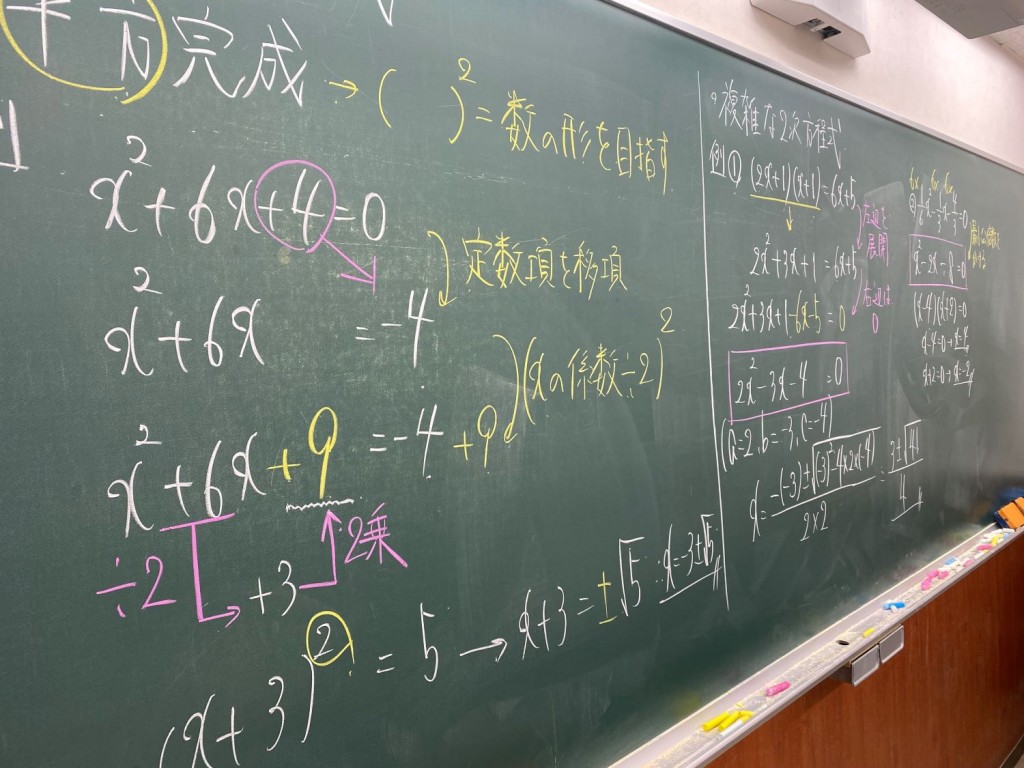 平方完成 → ( )² = 数の形を目指す
x² + 6x + 4 = 0
定数項を移項
x² + 6x = -4
(xの係数÷2)²
x² + 6x + 9 = -4 + 9
÷2 +3 2乗
(x+3)² = 5 → x+3 = ±√5 ∴ x = -3±√5
複雑な2次方程式
例① (2x+1)(x+1) = 6x+5
左辺を展開
2x²+3x+1 = 6x+5
右辺は0
2x²+3x+1-6x-5 = 0
2x²-3x-4 = 0
(a=2, b=-3, c=-4)
x = -(-3)±√(-3)²-4×2×(-4) / 2×2 = 3±√41 / 4
x²-2x-8=0
(x-4)(x+2)=0
x-4=0→x=4
x+2=0→x=-2